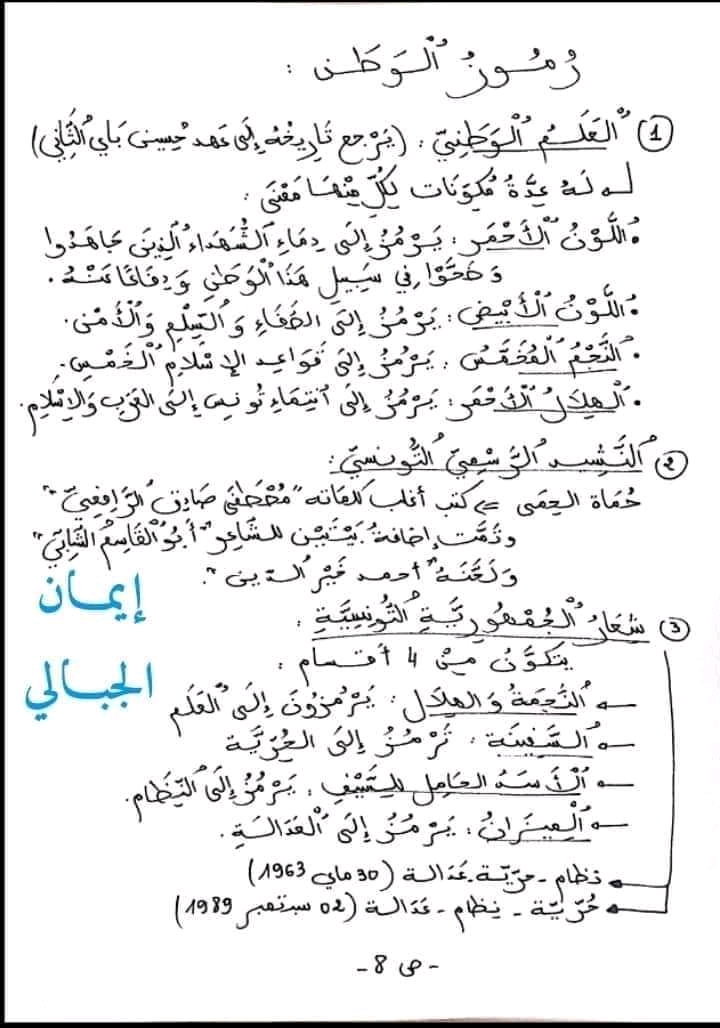 رُمُوزُ الْوَطَنِ :
① الْعَلَمُ الْوَطَنِيّ : (يَرْجع تَارِيخُهُ إِلَى عَهد حُسين بَاي الثَّانِي)
لَهُ عِدَّةُ مُكَوِّنَات لِكُلٍّ مِنْهَا مَعْنَى :
• اللَّوْنُ الْأَحْمَر : يَرْمُزُ إِلَى دِمَاءِ الشُّهَدَاءِ الَّذِينَ جَاهَدُوا
وَضَحَّوْا فِي سَبِيلِ هَذَا الْوَطَنِ وَدِفَاعًا عَنْهُ .
• اللَّوْنُ الْأَبْيَض : يَرْمُزُ إِلَى الصَّفَاءِ وَالسِّلْمِ وَالْأَمْن .
• النَّجْمُ الْمُخَمَّسُ : يَرْمُزُ إِلَى قَوَاعِدِ الإِسْلَامِ الْخَمْسِ .
• الْهِلَالُ الْأَحْمَر : يَرْمُزُ إِلَى اِنْتِمَاءِ تُونس إِلَى العَرَبِ وَالإِسْلَامِ .
② النَّشِيدُ الرَّسْمِيّ التُّونسِيّ :
حُمَاة الحِمَى => كتب أغلب كلماته "مُصْطَفَى صَادِق الرَّافِعِيّ"
وتُمَّت إضافةُ بَيْتَيْن للشَّاعِر "أَبُو الْقَاسِم الشَّابِّي"
وَلَحَّنَهُ "أحمد خَيْر الدّين" .
إيمان
الجبالي
③ شِعَارُ الْجُمْهُورِيَّةِ التُّونِسِيَّةِ :
يَتَكَوَّنُ مِنْ 4 أقسام :
← النَّجْمَةُ وَالهِلَال : يَرْمُزُونَ إِلَى الْعَلَم
← السَّفِينَة : تَرْمُزُ إِلَى الحُرِّيَّة
← الْأَسَدُ الحَامِل لِلسَّيْفِ : يَرْمُزُ إِلَى النِّظَام .
← الْمِيزَانُ : يَرْمُزُ إِلَى الْعَدَالَةِ .
نظام - حرّيّة - عَدَالة (30 ماي 1963)
حُرّيّة - نِظام - عَدَالة (02 سبتمبر 1989)
- ص 8 -